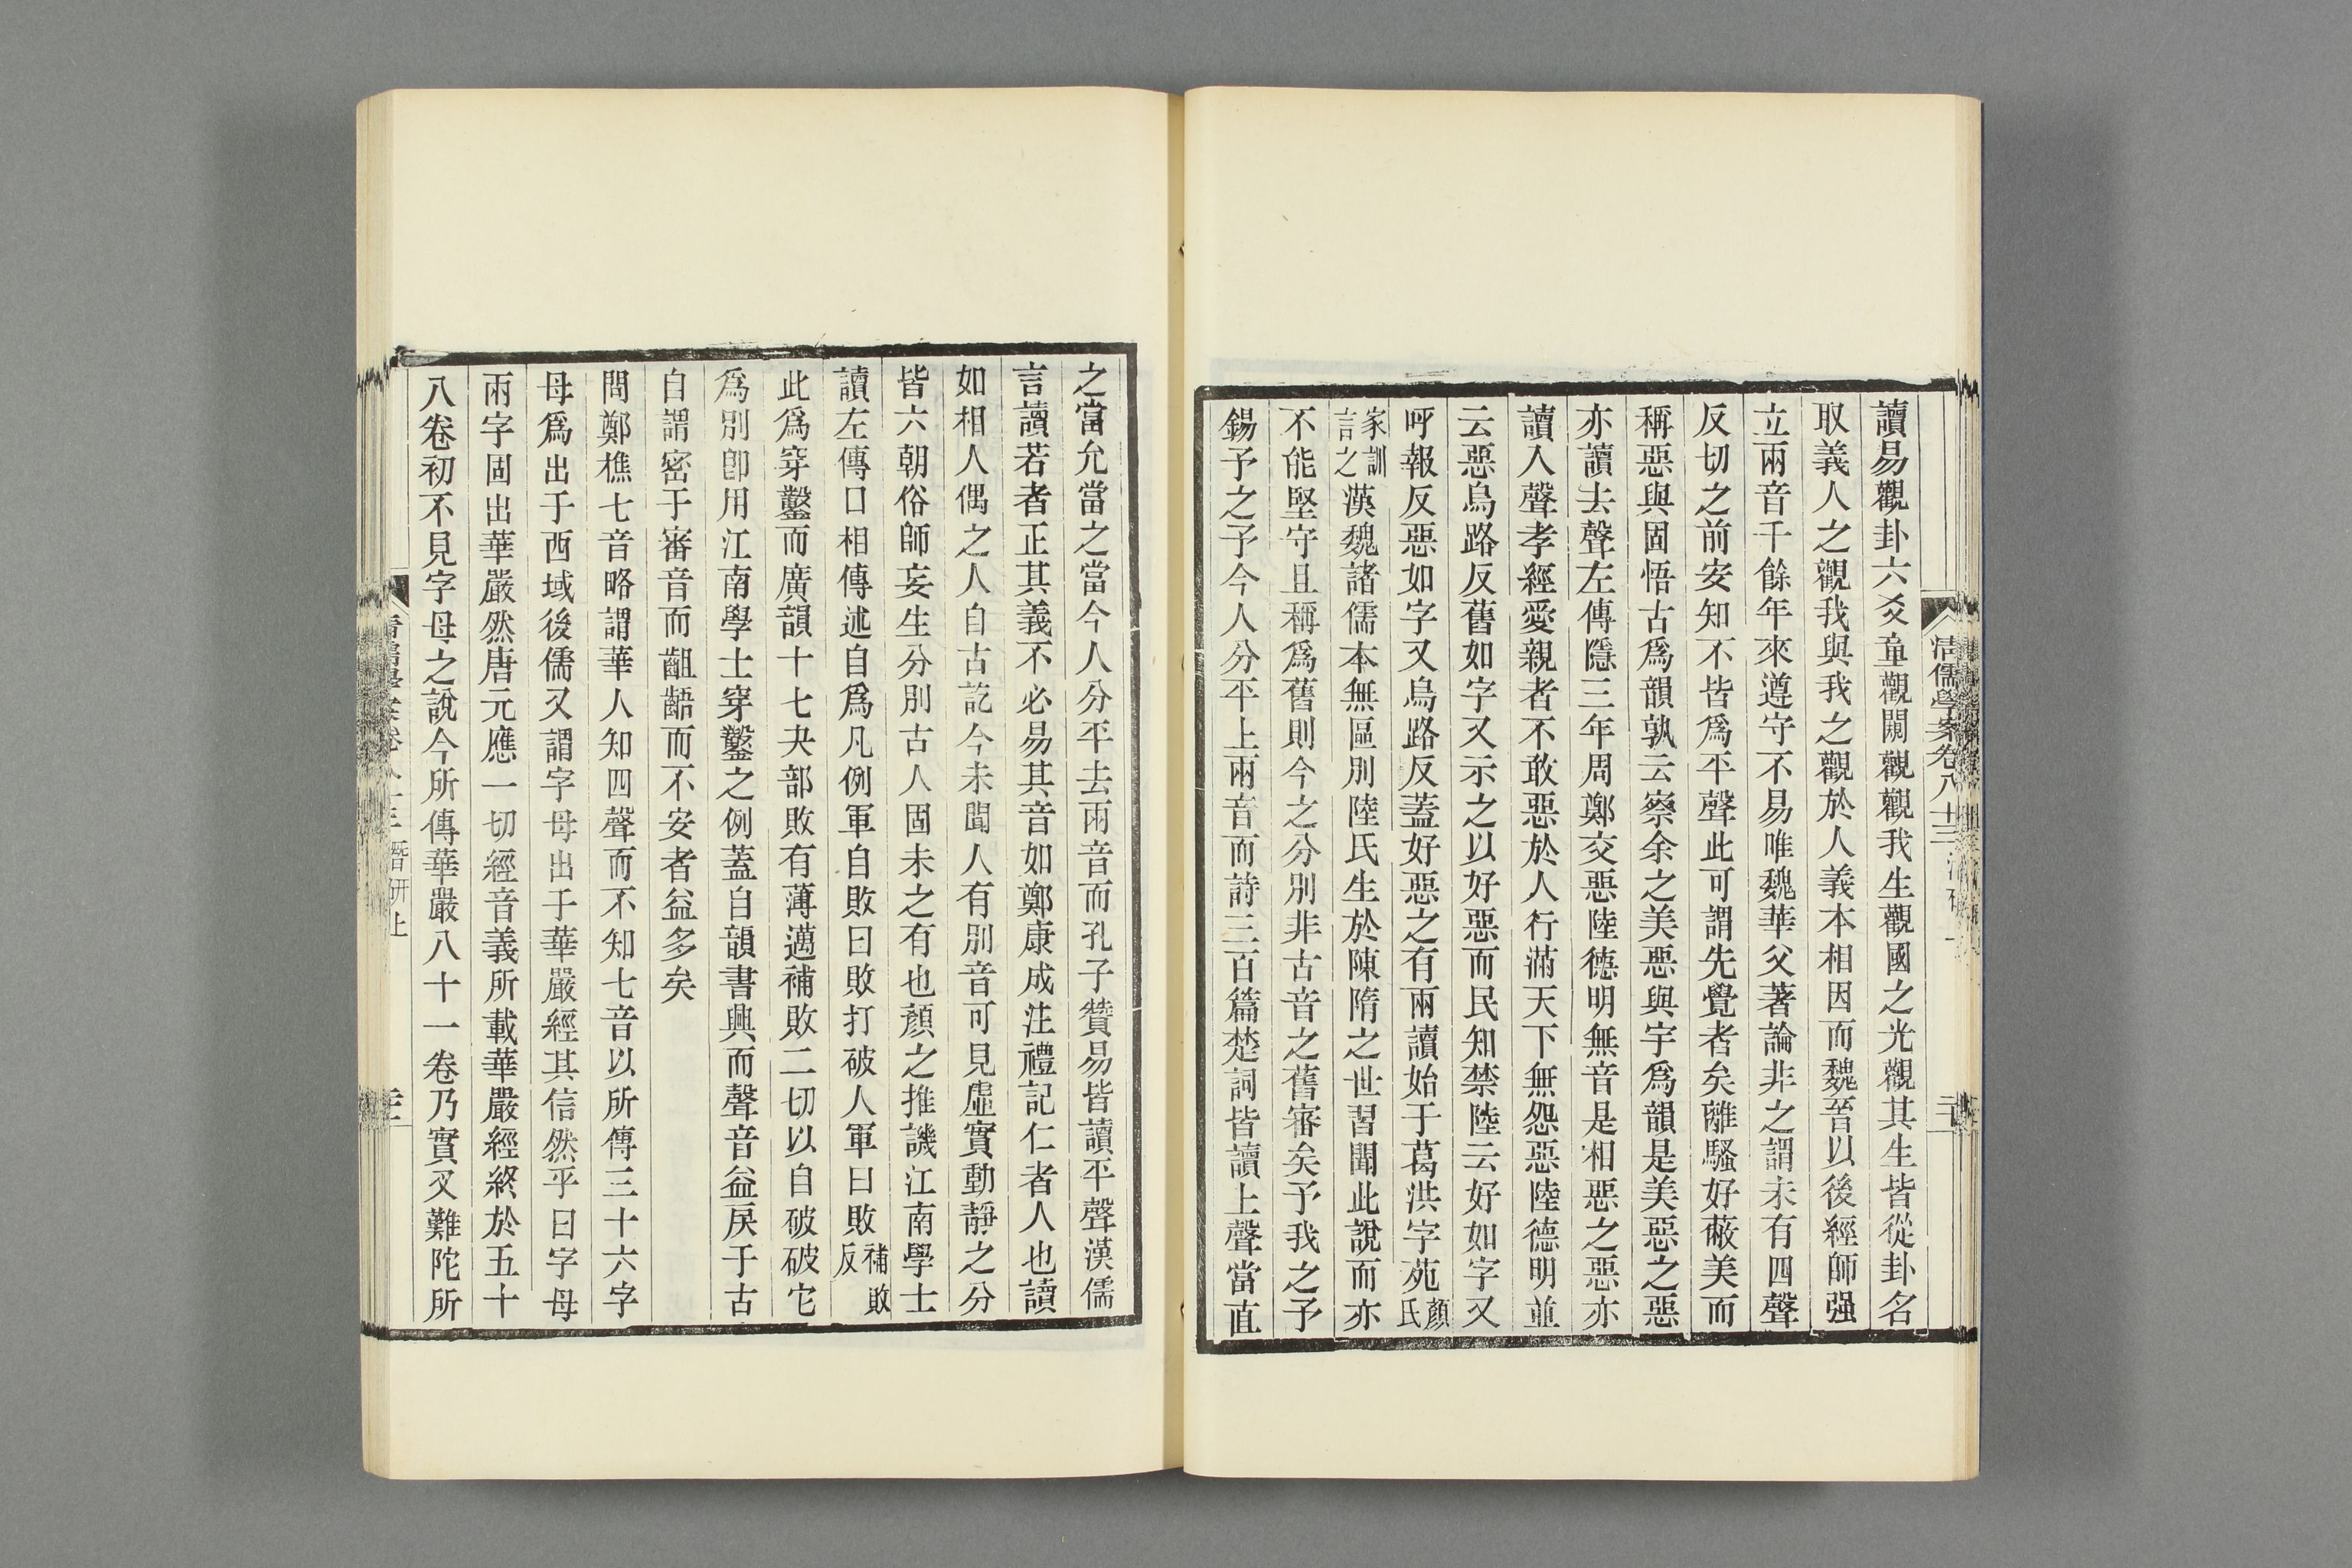 讀易觀卦六爻童觀闚觀觀我生觀國之光觀其生皆從卦名
取義人之觀我與我之觀於人義本相因而魏晉以後經師强
立兩音千餘年來遵守不易唯魏華父著論非之謂未有四聲
反切之前安知不皆爲平聲此可謂先覺者矣離騷好蔽美而
稱惡與固悟古爲韻孰云察余之美惡與宇爲韻是美惡之惡
亦讀去聲左傳隱三年周鄭交惡陸德明無音是相惡之惡亦
讀入聲孝經愛親者不敢惡於人行滿天下無怨惡陸德明並
云惡烏路反舊如字又示之以好惡而民知禁陸云好如字又
呼報反惡如字又烏路反蓋好惡之有兩讀始于葛洪字苑顏氏
家訓言之漢魏諸儒本無區別陸氏生於陳隋之世習聞此說而亦
不能堅守且稱爲舊則今之分別非古音之舊審矣予我之予
錫予之予今人分平上兩音而詩三百篇楚詞皆讀上聲當直
之當允當之當今人分平去兩音而孔子贊易皆讀平聲漢儒
言讀若者正其義不必易其音如鄭康成注禮記仁者人也讀
如相人偶之人自古訖今未聞人有別音可見虛實動靜之分
皆六朝俗師妄生分別古人固未之有也顏之推譏江南學士
讀左傳口相傳述自爲凡例軍自敗曰敗打破人軍曰敗補敗反
此爲穿鑿而廣韻十七夬部敗有薄邁補敗二切以自破破它
爲別卽用江南學士穿鑿之例蓋自韻書興而聲音益戾于古
自謂密于審音而齟齬而不安者益多矣
問鄭樵七音略謂華人知四聲而不知七音以所傳三十六字
母爲出于西域後儒又謂字母出于華嚴經其信然乎曰字母
兩字固出華嚴然唐元應一切經音義所載華嚴經終於五十
八卷初不見字母之說今所傳華嚴八十一卷乃實叉難陀所
清儒學案卷八十三
潛研上